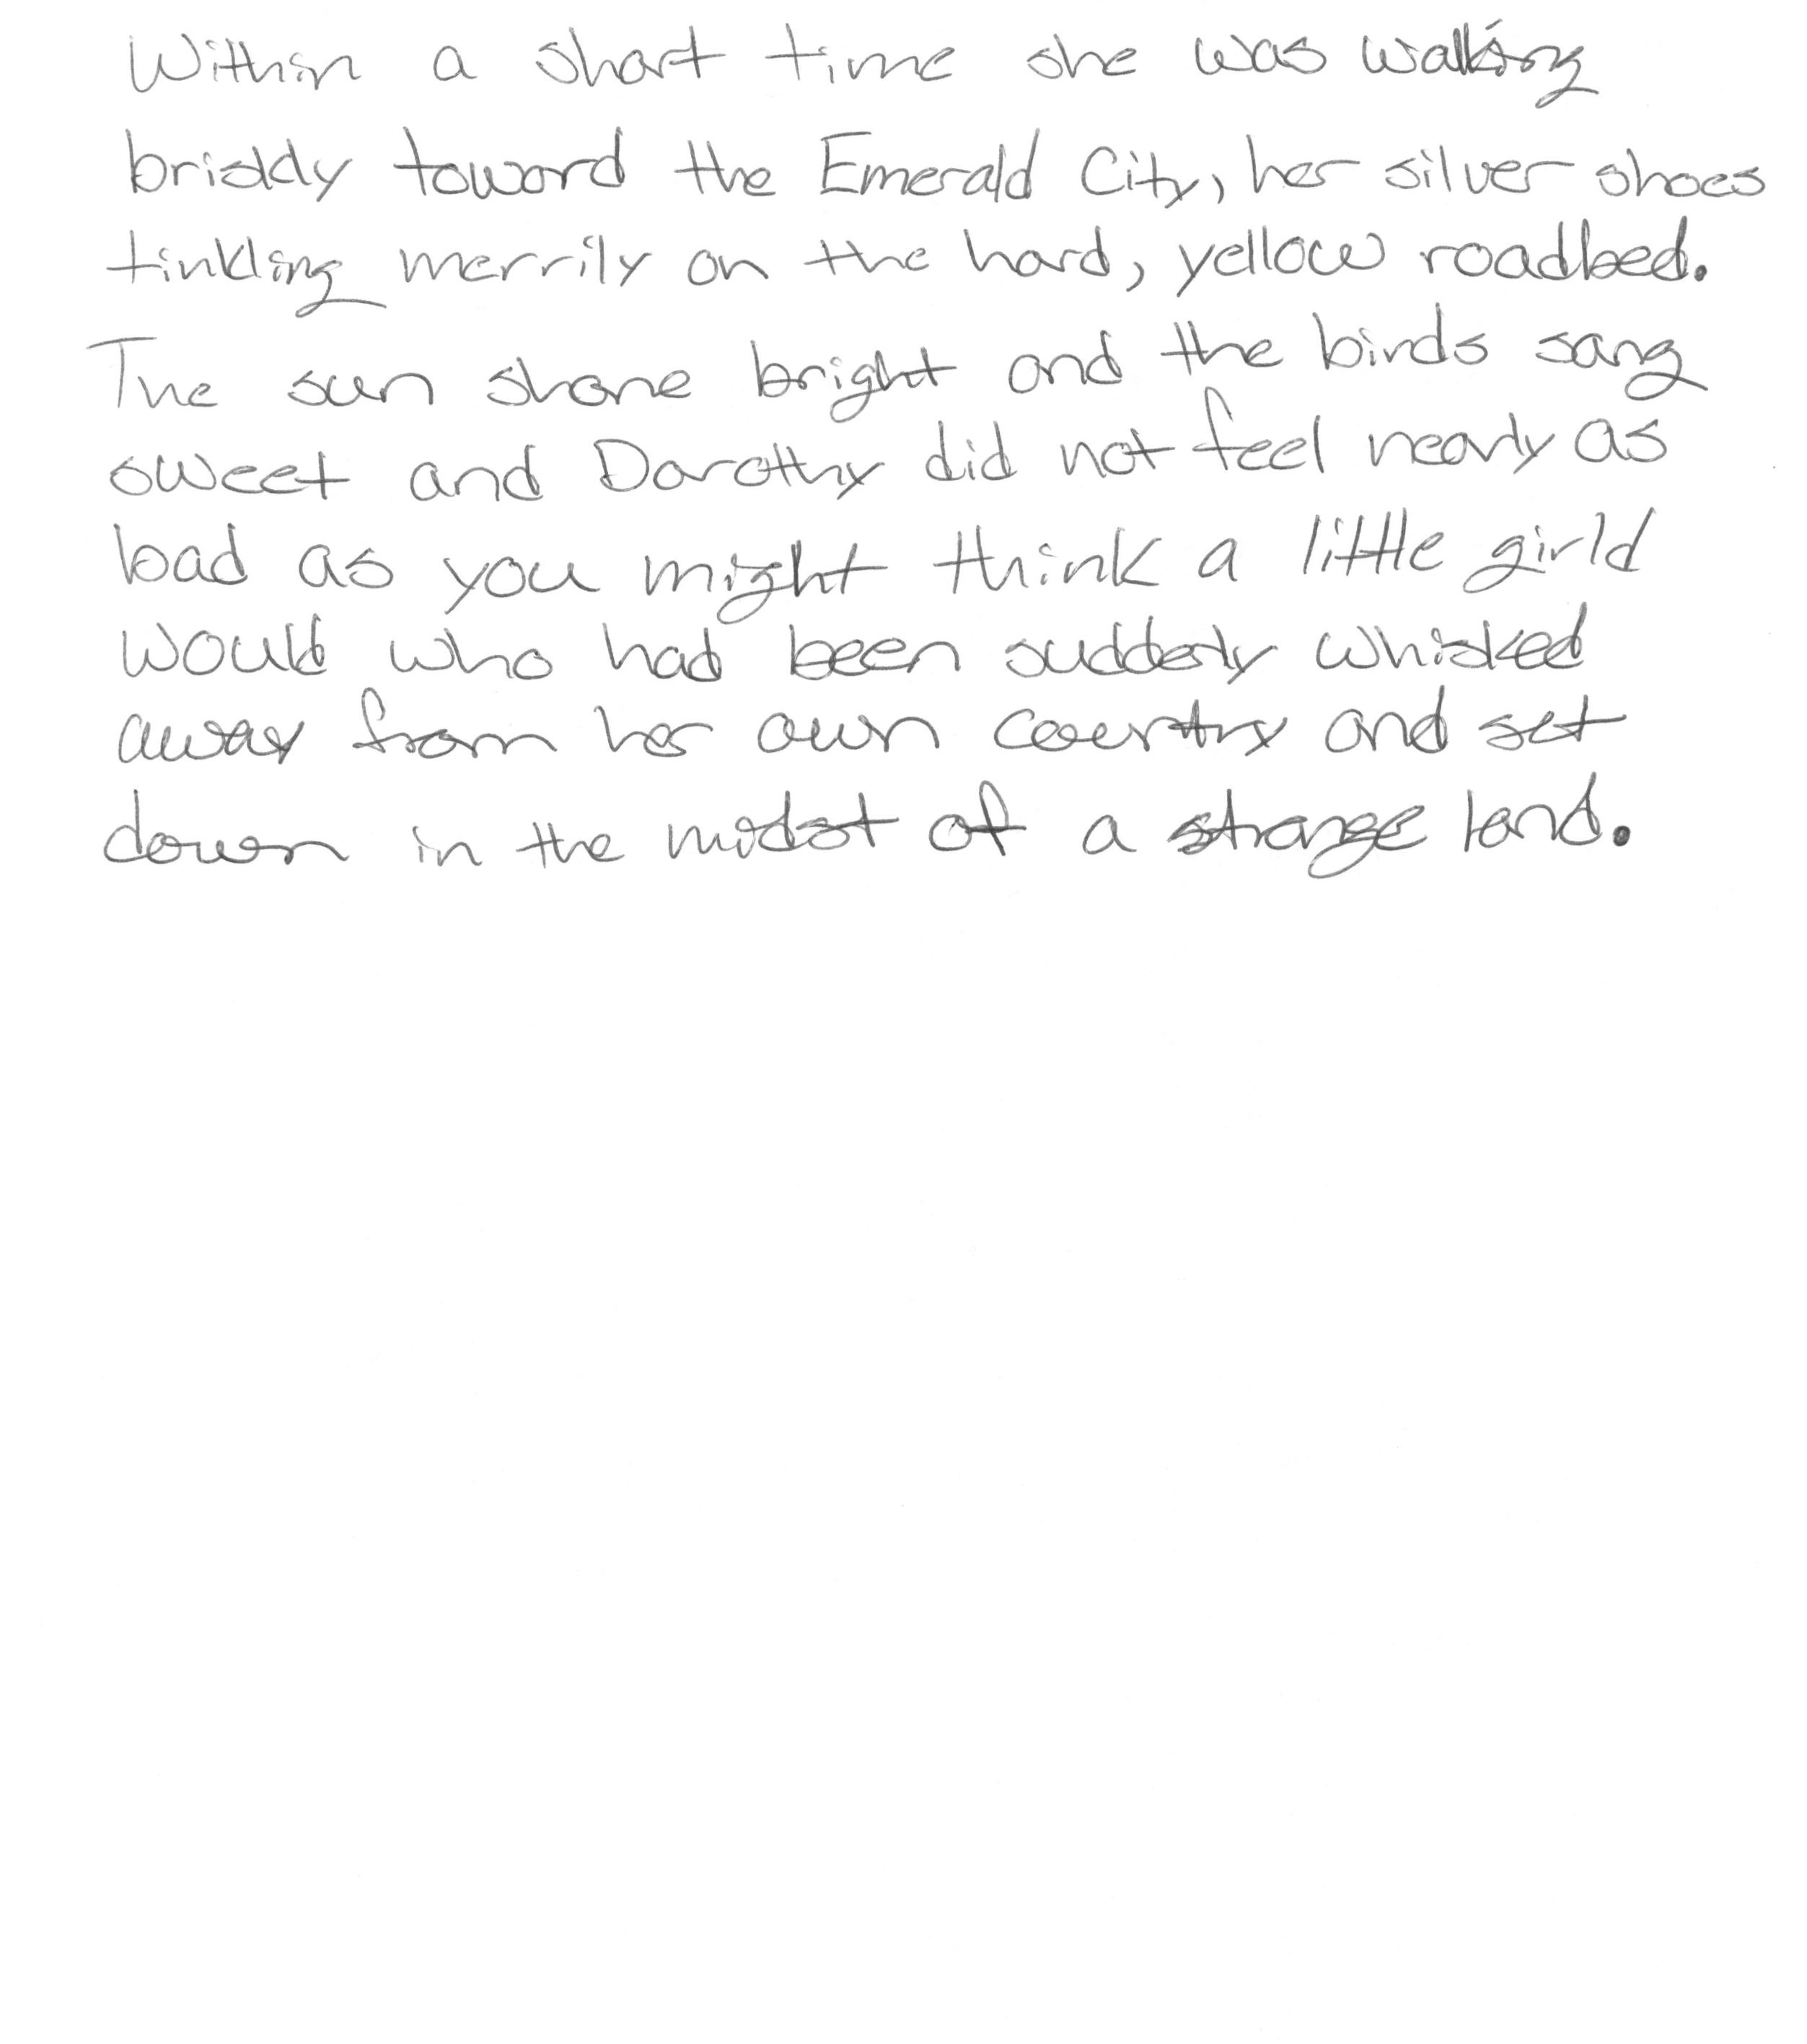 Within a short time she was walking
briskly toward the Emerald City, her silver shoes
tinkling merrily on the hard, yellow roadbed.
The sun shone bright and the birds sang
sweet and Dorothy did not feel nearly as
bad as you might think a little girld
would who had been suddenly whisked
away from her own country and set
down in the midst of a strange land.